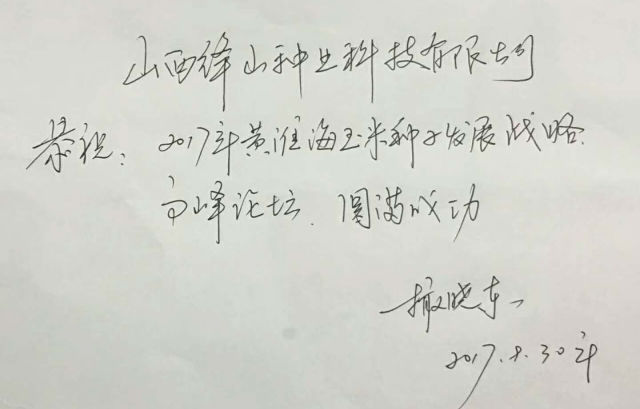 山西绛山种业科技有限公司
恭祝：2017年黄淮海玉米种子发展战略
高峰论坛．圆满成功
撒晓东
2017.8.30订